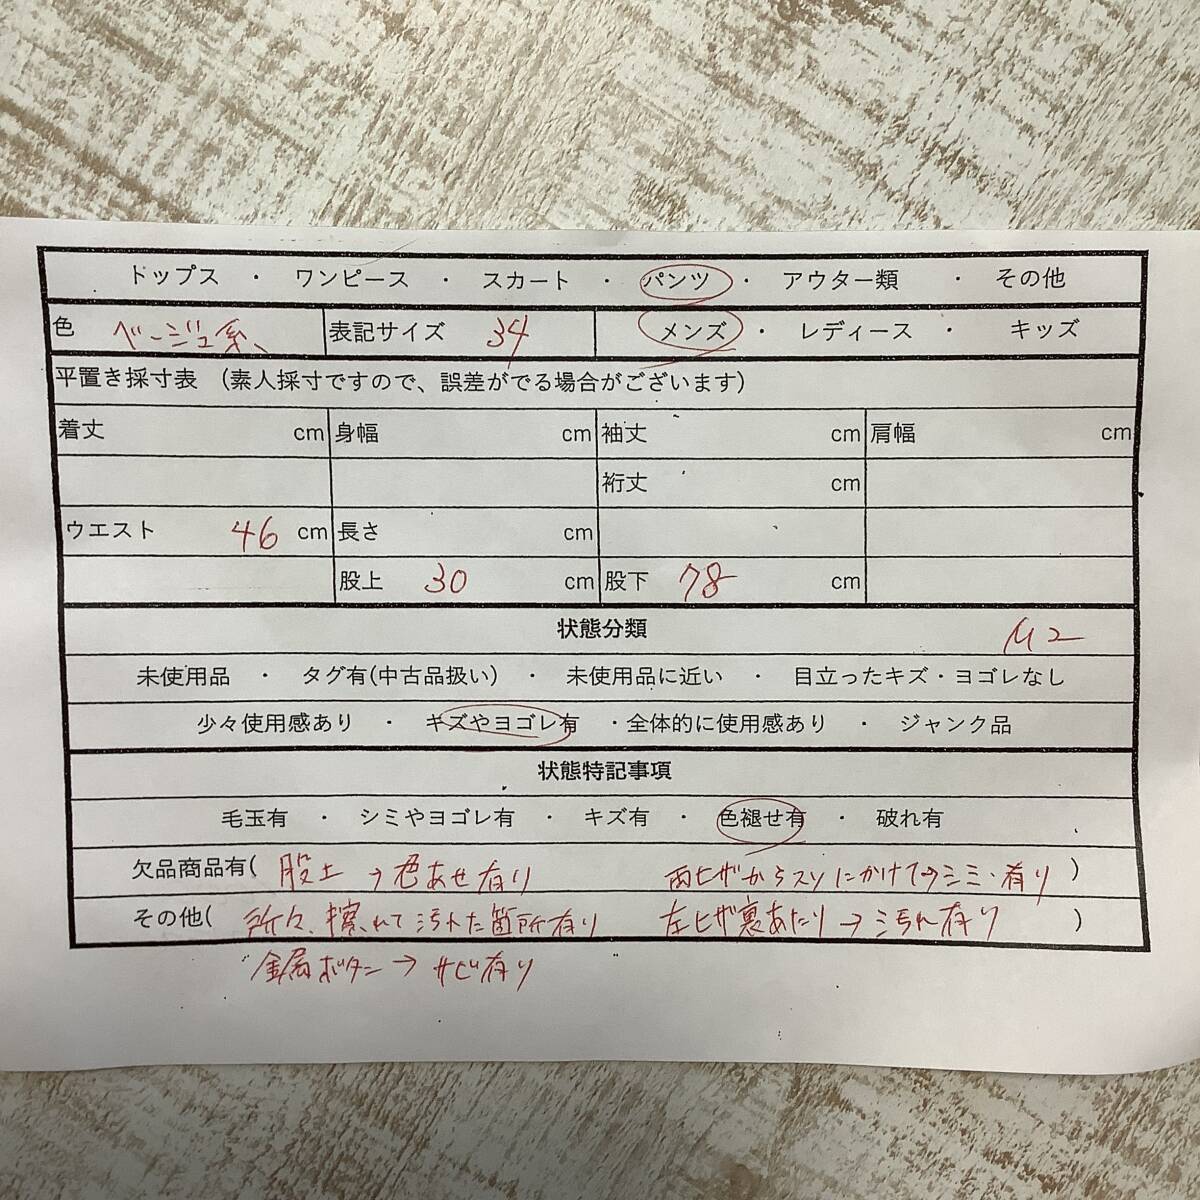 トップス ・ ワンピース ・ スカート ・ パンツ ・ アウター類 ・ その他
色 ベージュ系、 表記サイズ 34 メンズ ・ レディース ・ キッズ
平置き採寸表 （素人採寸ですので、誤差がでる場合がございます）
着丈 cm 身幅 cm 袖丈 cm 肩幅 cm
裄丈 cm
ウエスト 46 cm 長さ cm
股上 30 cm 股下 78 cm
状態分類 M2
未使用品 ・ タグ有(中古品扱い) ・ 未使用品に近い ・ 目立ったキズ・ヨゴレなし
少々使用感あり ・ キズやヨゴレ有 ・全体的に使用感あり ・ ジャンク品
状態特記事項
毛玉有 ・ シミやヨゴレ有 ・ キズ有 ・ 色褪せ有 ・ 破れ有
欠品商品有( 股上→色あせ有り 両ヒザからスソにかけて→シミ・有り )
その他( 所々、擦れて汚れた箇所有り 左ヒザ裏あたり→汚れ有り )
金属ボタン→サビ有り